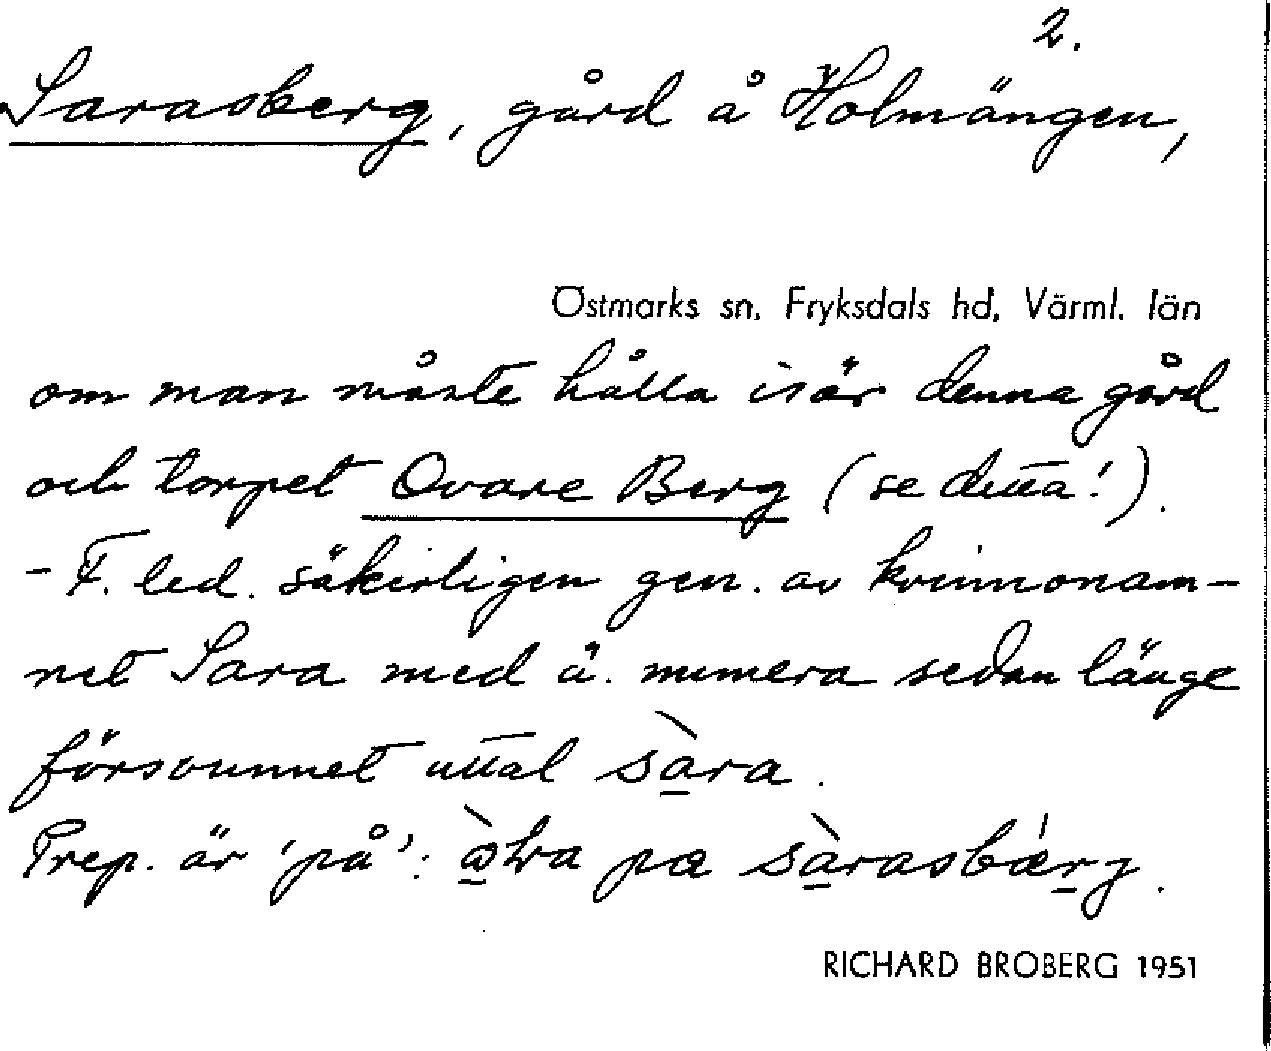 2.
Sarasberg, gård å Holmängen,
Östmarks sn, Fryksdals hd, Värml. län
om man måste hålla isär denna gård
och torpet Ovare Berg (se detta!).
- F. led. säkerligen gen. av kvinnonam-
net Sara med ä. numera sedan länge
försvunnet uttal sàra.
Prep. är 'på': pa sàrasbærg.
RICHARD BROBERG 1951